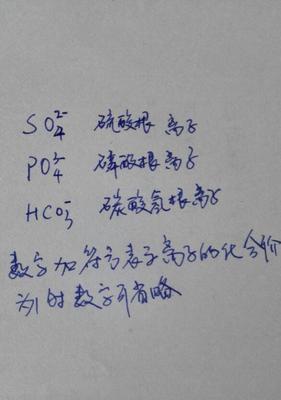 SO₄²⁻ 硫酸根离子
PO₄³⁻ 磷酸根离子
HCO₃⁻ 碳酸氢根离子
数字加符号表示离子的化合价
为1时数字可省略